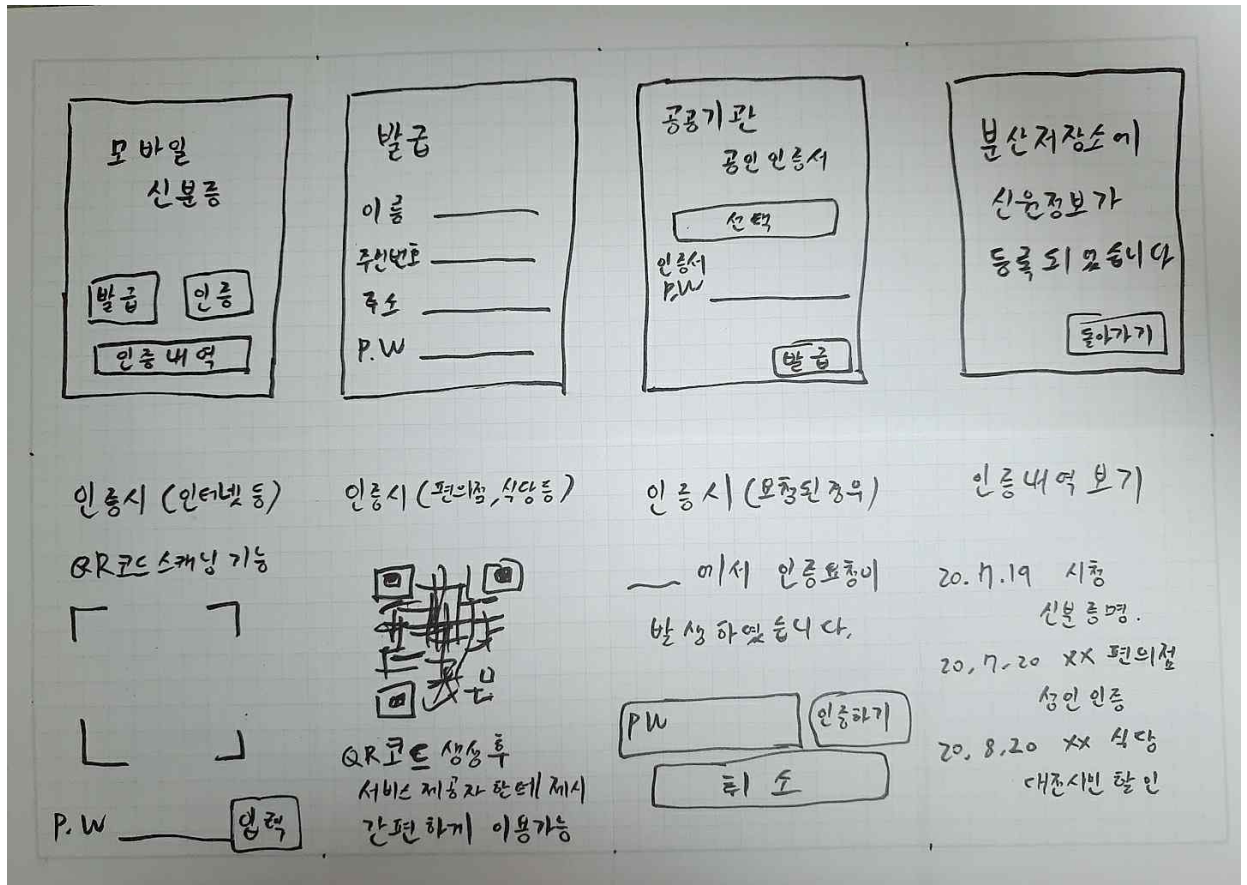 모바일
신분증
발급
인증
인증내역
발급
이름
주민번호
주소
P.W
공공기관
공인인증서
선택
인증서
P.W
발급
분산저장소에
신원정보가
등록되었습니다
돌아가기
인증시 (인터넷 등)
QR코드 스캐닝 기능
P.W
입력
인증시 (편의점, 식당등)
QR코드 생성 후
서비스 제공자 한테 제시
간편하게 이용가능
인증시 (요청된 경우)
에서 인증요청이
발생하였습니다.
PW
인증하기
취소
인증내역 보기
20.7.19 시청
신분증명.
20.7.20 XX 편의점
성인 인증
20.8.20 XX 식당
대전시민 할인